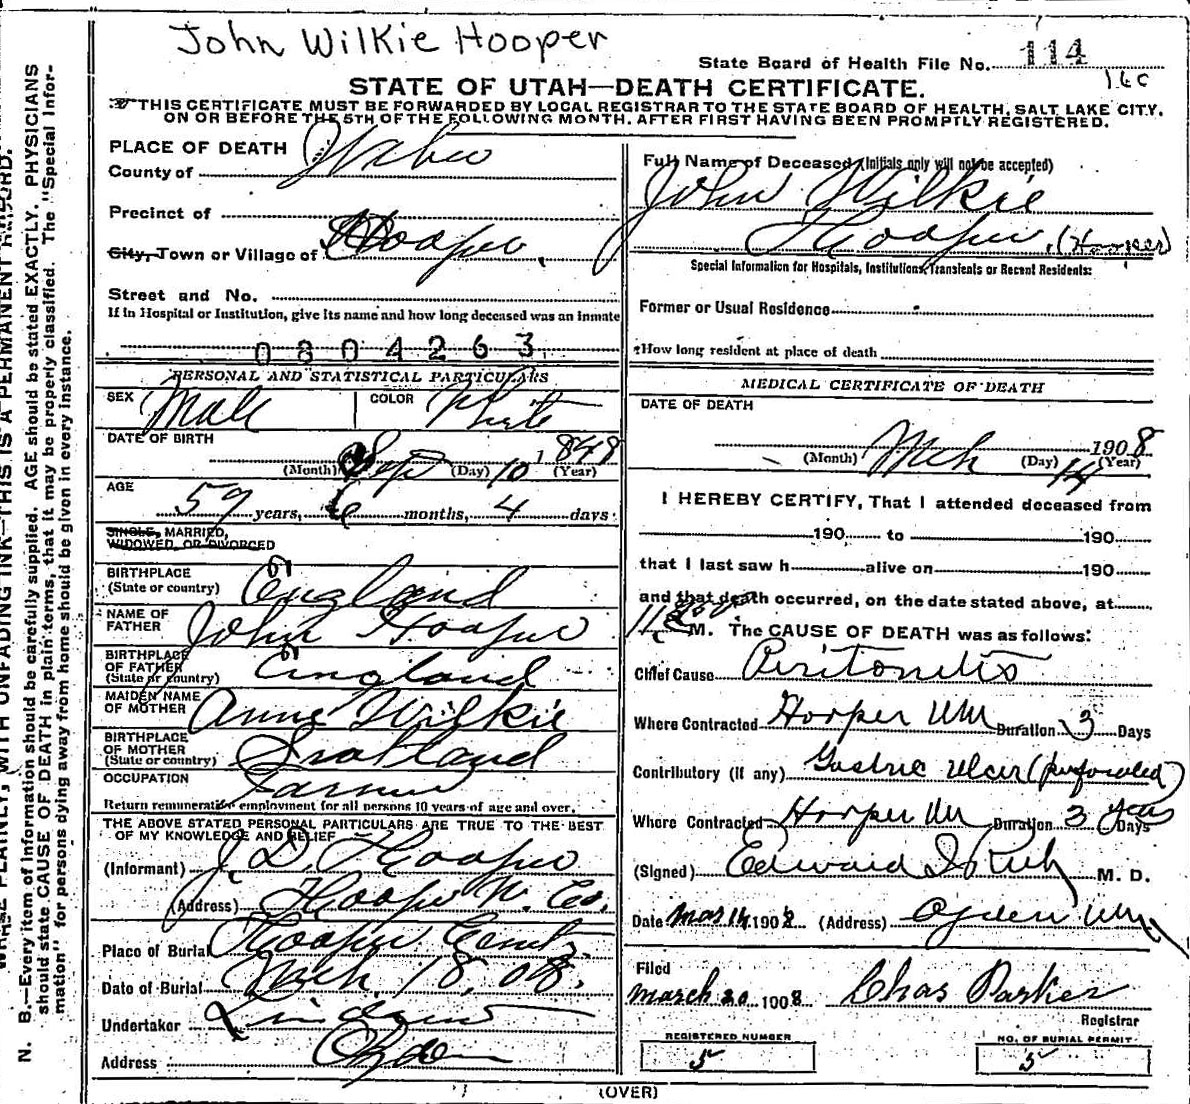 John Wilkie Hooper
State Board of Health File No. 114
16c
STATE OF UTAH—DEATH CERTIFICATE.
THIS CERTIFICATE MUST BE FORWARDED BY LOCAL REGISTRAR TO THE STATE BOARD OF HEALTH, SALT LAKE CITY,
ON OR BEFORE THE 5TH OF THE FOLLOWING MONTH, AFTER FIRST HAVING BEEN PROMPTLY REGISTERED.
PLACE OF DEATH
County of Weber
Precinct of
City, Town or Village of Hooper.
Street and No.
If in Hospital or Institution, give its name and how long deceased was an inmate
0804263
PERSONAL AND STATISTICAL PARTICULARS
SEX Male COLOR White
DATE OF BIRTH
Sept 10 1848
(Month) (Day) (Year)
AGE
59 years, 6 months, 4 days
SINGLE, MARRIED,
WIDOWED, OR DIVORCED
BIRTHPLACE
(State or country) England
NAME OF
FATHER John Hooper
BIRTHPLACE
OF FATHER
(State or country) England
MAIDEN NAME
OF MOTHER Anne Wilkie
BIRTHPLACE
OF MOTHER
(State or country) Scotland
OCCUPATION Farmer
Return remunerative employment for all persons 10 years of age and over.
THE ABOVE STATED PERSONAL PARTICULARS ARE TRUE TO THE BEST
OF MY KNOWLEDGE AND BELIEF
(Informant) J. D. Hooper
(Address) Hooper W. Co.
Place of Burial Hooper Cemty.
Date of Burial Mch. 18, 08.
Undertaker
Address Ogden
Full Name of Deceased (Initials only will not be accepted)
John Wilkie
Hooper. (Hooper)
Special Information for Hospitals, Institutions, Transients or Recent Residents:
Former or Usual Residence
How long resident at place of death
MEDICAL CERTIFICATE OF DEATH
DATE OF DEATH
Mch 14 1908
(Month) (Day) (Year)
I HEREBY CERTIFY, That I attended deceased from
190 to 190
that I last saw h alive on 190
and that death occurred, on the date stated above, at
M. The CAUSE OF DEATH was as follows:
Chief Cause Peritonitis
Where Contracted Hooper Utah Duration 3 Days
Contributory (if any) Gastric Ulcer (perforated)
Where Contracted Hooper Utah Duration 3 years Days
(Signed) Edward I Rich M. D.
Date Mar 14 1908 (Address) Ogden Utah
Filed
March 20 1908 Chas Parker
Registrar
REGISTERED NUMBER
5
NO. OF BURIAL PERMIT
5
(OVER)
WRITE PLAINLY, WITH UNFADING INK—THIS IS A PERMANENT RECORD.
N. B.—Every item of information should be carefully supplied. AGE should be stated EXACTLY. PHYSICIANS
should state CAUSE OF DEATH in plain terms, that it may be properly classified. The "Special Infor-
mation" for persons dying away from home should be given in every instance.